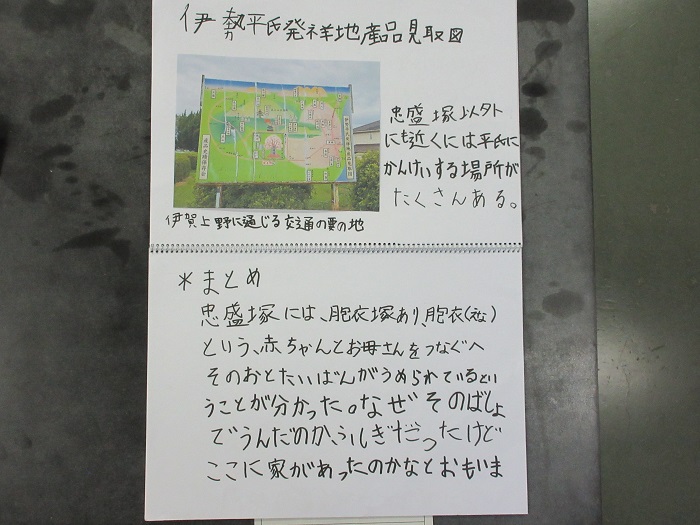 伊勢平氏発祥地産品見取図
忠盛塚以外
にも近くには平氏に
かんけいする場所が
たくさんある。
伊賀上野に通じる交通の要の地
*まとめ
忠盛塚には、胞衣塚あり、胞衣(えな)
という、赤ちゃんとお母さんをつなぐへ
そのおとたいばんがうめられているとい
うことが分かった。なぜそのばしょ
でうんだのか、ふしぎだったけど
ここに家があったのかなとおもいま